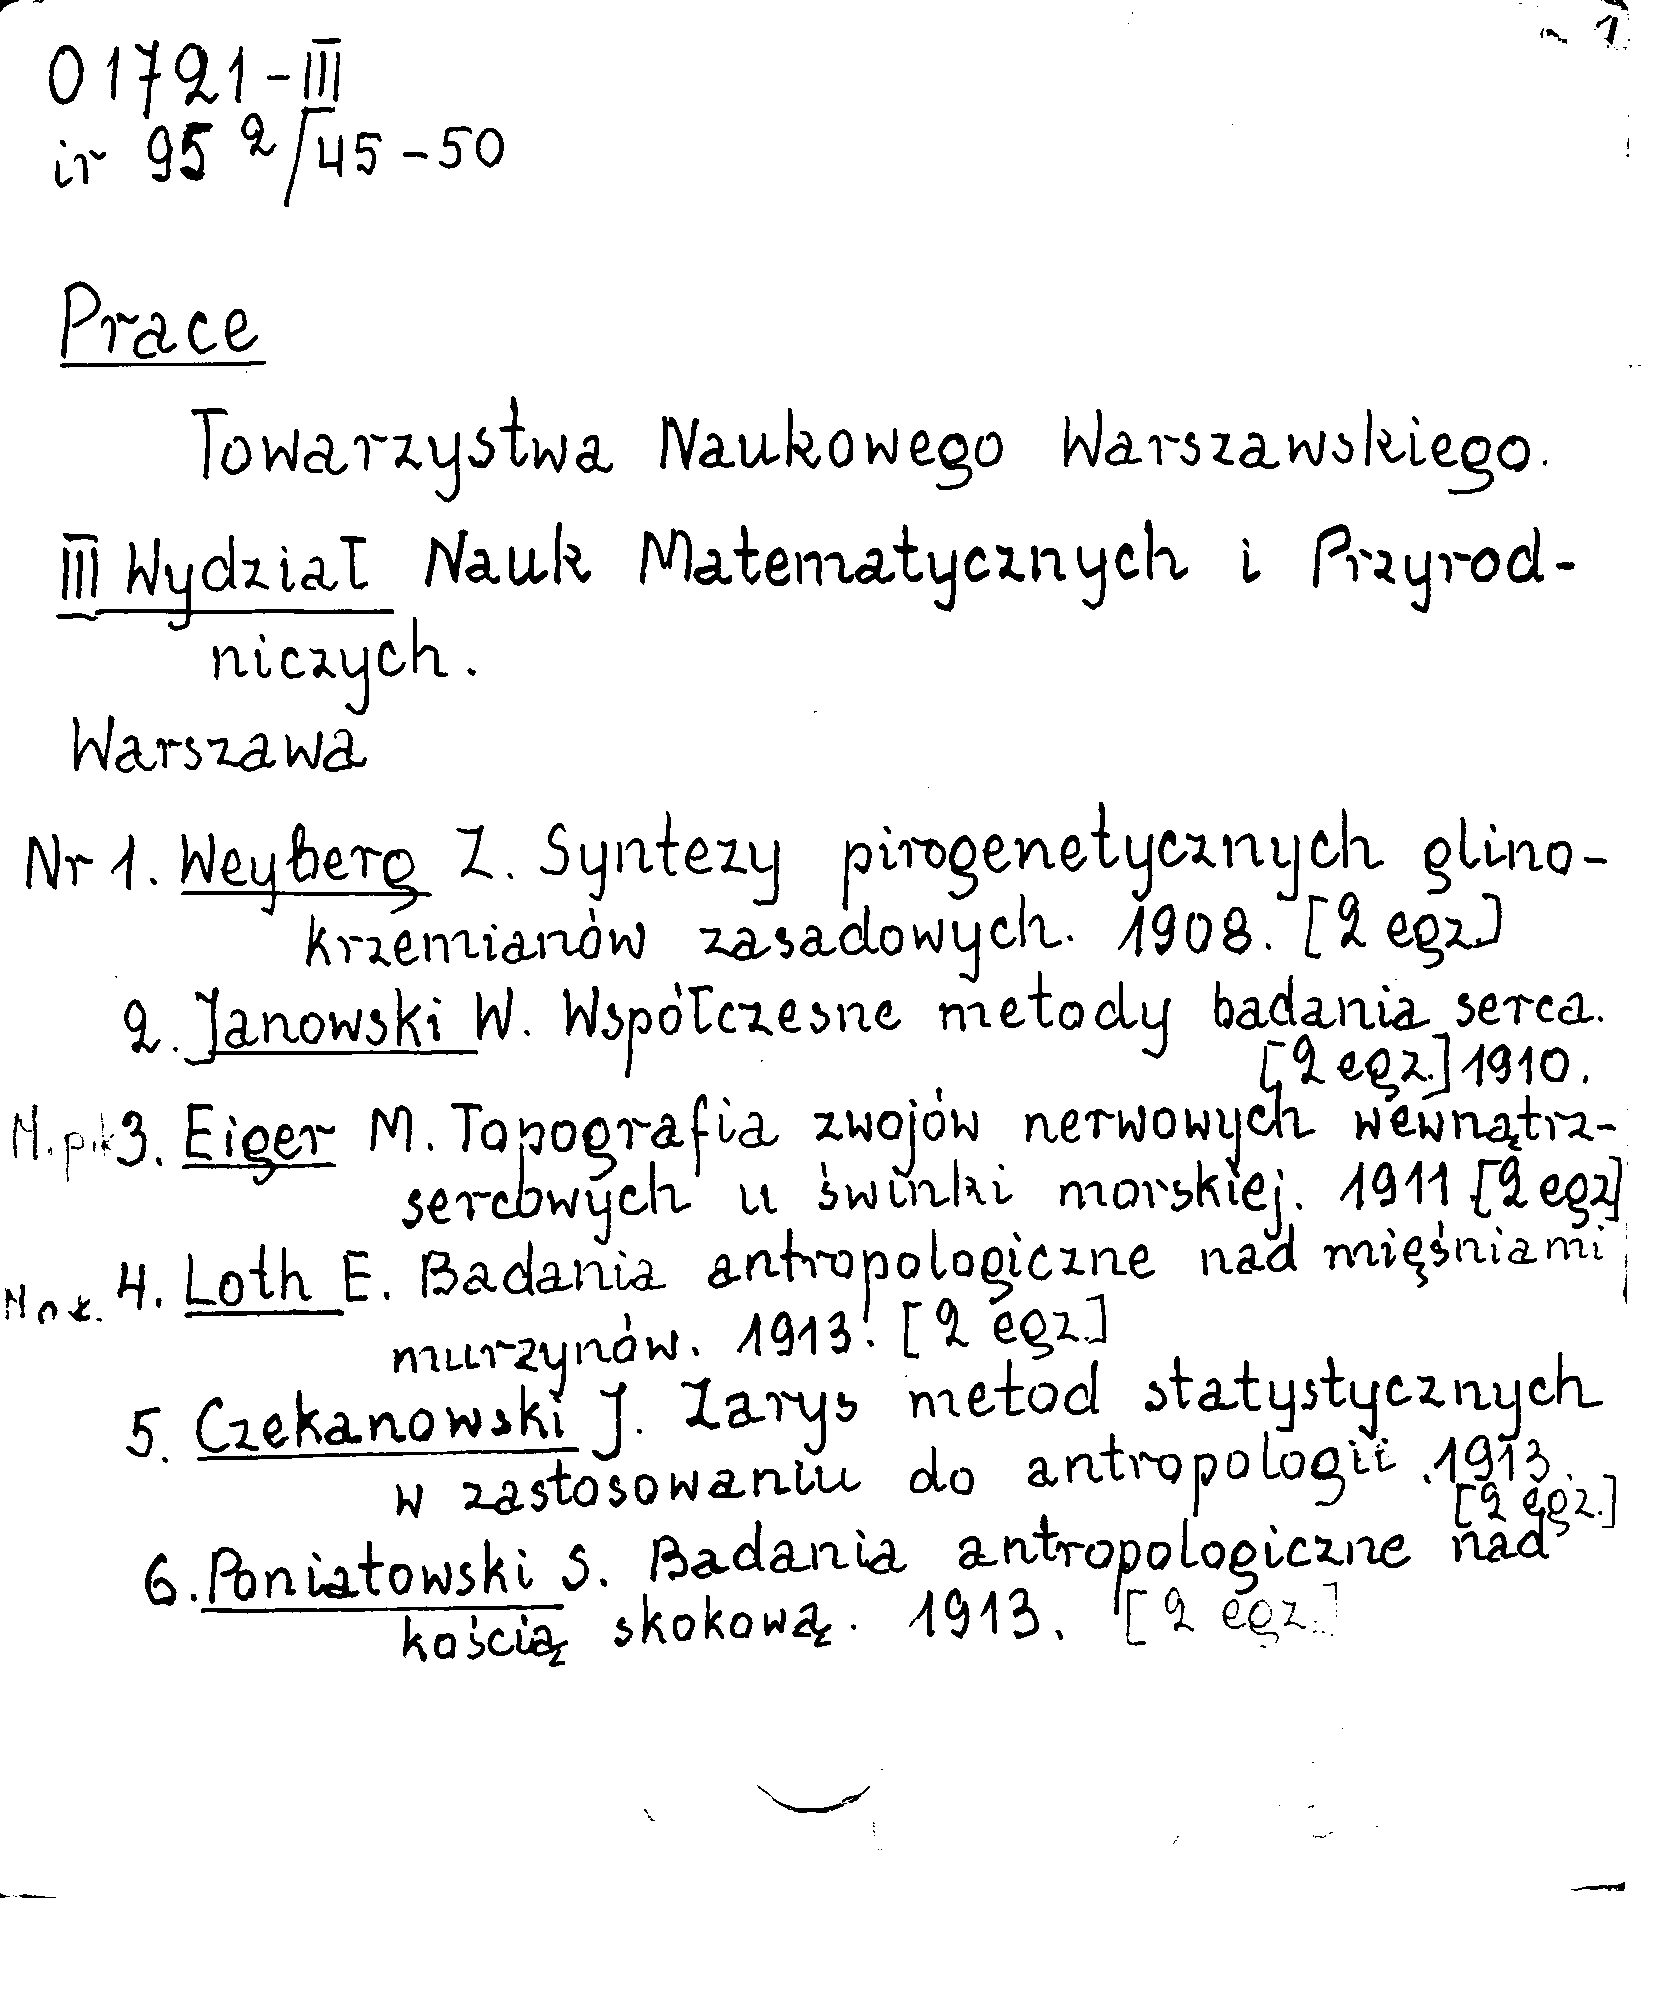 1
01721-III
ir 95 2/45-50
Prace
Towarzystwa Naukowego Warszawskiego.
III Wydział Nauk Matematycznych i Przyrod-
niczych.
Warszawa
Nr 1. Weyberg Z. Syntezy pirogenetycznych glino-
krzemianów zasadowych. 1908. [2 egz.]
2. Janowski W. Współczesne metody badania serca.
[2 egz.] 1910.
3. Eiger M. Topografia zwojów nerwowych wewnątrz-
sercowych u świnki morskiej. 1911 [2 egz]
4. Loth E. Badania antropologiczne nad mięśniami
murzynów. 1913. [2 egz.]
5. Czekanowski J. Zarys metod statystycznych
w zastosowaniu do antropologii. 1913.
[2 egz.]
6. Poniatowski S. Badania antropologiczne nad
kością skokową. 1913. [2 egz.]